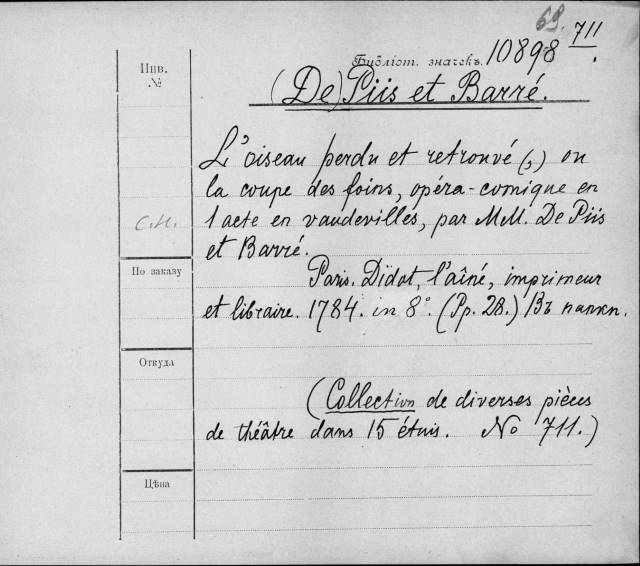 69. 711
Инв.
№
Библіот. значекъ. 10898
(De) Piis et Barré.
L'oiseau perdu et retrouvé (,) ou
la coupe des foins, opéra-comique en
С.Н. 1 acte en vaudevilles, par M.M. De Piis
et Barré.
По заказу
Paris. Didot, l'aîné, imprimeur
et libraire. 1784. in 8°. (Pp. 28.) Въ папкѣ.
Откуда
(Collection de diverses pièces
de théâtre dans 15 étuis. No 711.)
Цѣна